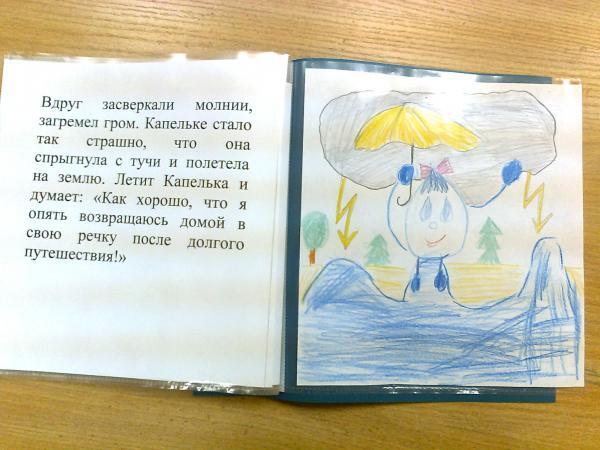 Вдруг засверкали молнии,
загремел гром. Капельке стало
так страшно, что она
спрыгнула с тучи и полетела
на землю. Летит Капелька и
думает: «Как хорошо, что я
опять возвращаюсь домой в
свою речку после долгого
путешествия!»